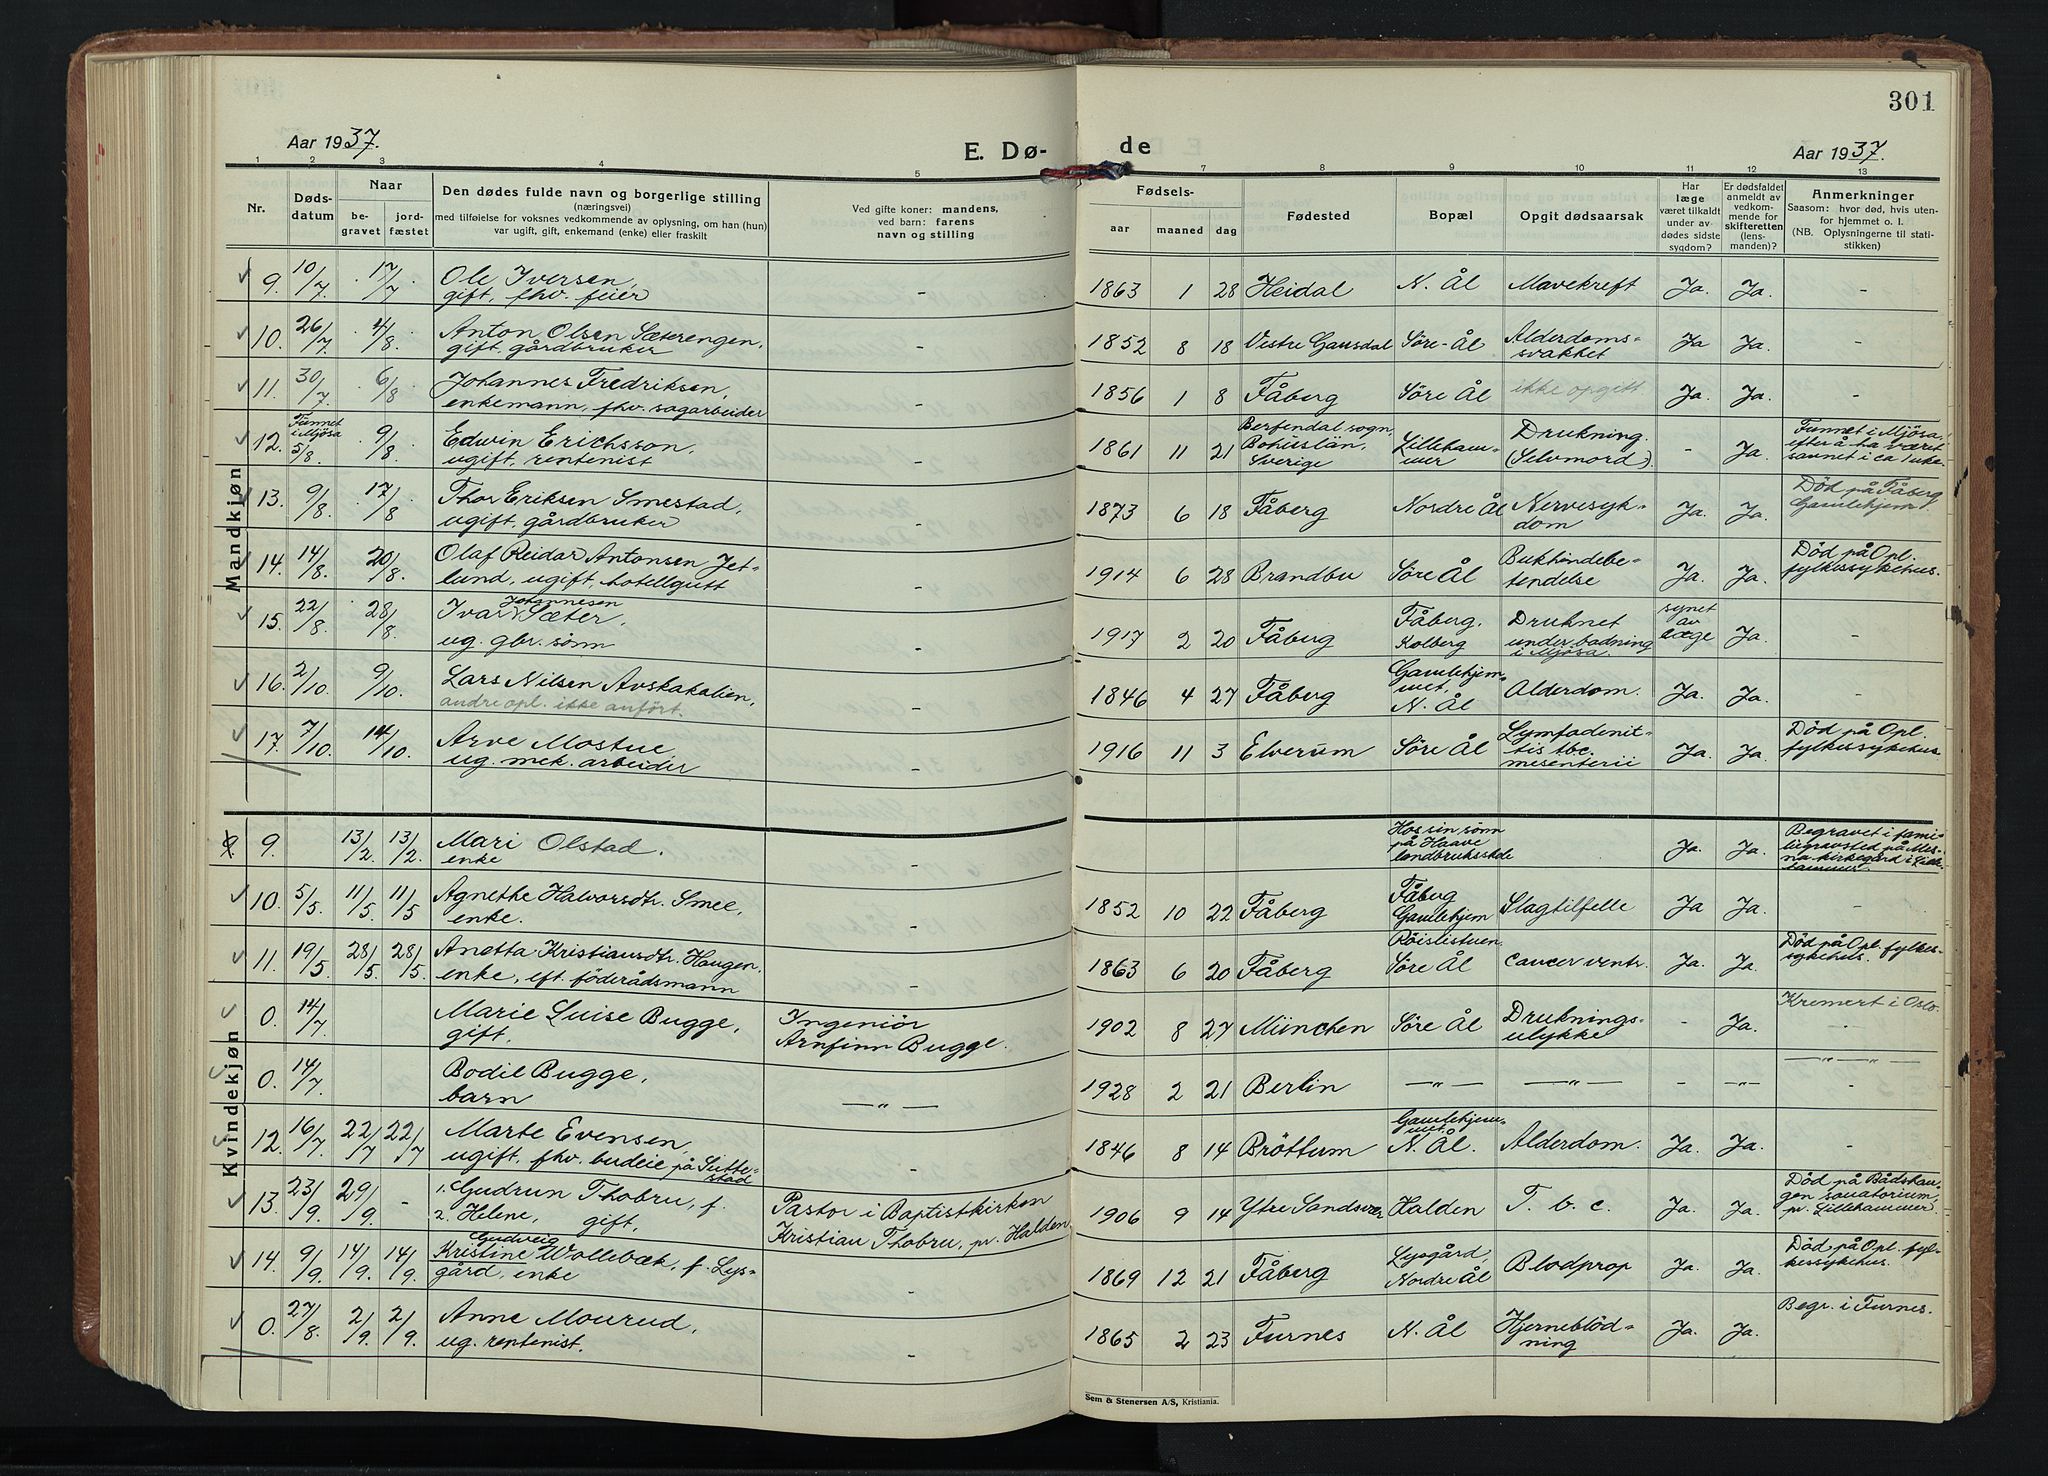 301
Aar 1937.
E. Dø-
de
Aar 1937.
1 2 3 4 5 7 8 9 10 11 12 13
Nr.
Døds-
datum
Naar
be-
gravet
jord-
fæstet
Den dødes fulde navn og borgerlige stilling
(næringsvei)
med tilføielse for voksnes vedkommende av oplysning, om han (hun)
var ugift, gift, enkemand (enke) eller fraskilt
Ved gifte koner: mandens,
ved barn: farens
navn og stilling
Fødsels-
aar maaned dag
Fødested
Bopæl
Opgit dødsaarsak
Har
læge
været tilkaldt
under av-
dødes sidste
sygdom?
Er dødsfaldet
anmeldt av
vedkom-
mende for
skifteretten
(lens-
manden)?
Anmerkninger
Saasom: hvor død, hvis uten-
for hjemmet o. l.
(NB. Oplysningerne til stati-
stikken)
Mandkjøn
9. 10/7 17/7 Ole Iversen, - 1863 1 28 Heidal N. Ål Mavekreft Ja. Ja. -
gift, fhv. feier
10. 26/7 4/8. Anton Olsen Sæterengen, - 1852 8 18 Vestre Gausdal Søre-Ål Alderdoms- Ja Ja. -
gift, gårdbruker svakket
11. 30/7 6/8 Johannes Fredriksen, - 1856 1 8 Fåberg Søre Ål ikke opgitt Ja. Ja. -
enkemann, fhv. sagarbeider
12. Funnet i Mjøsa 5/8 9/8. Edwin Erichsson, - 1861 11 21 Berfendal sogn, Bohuslän, Sverige Lilleham- Drukning. - Ja. Funnet i Mjøsa,
ugift, rentenist mer (Selvmord). efter å ha været
savnet i ca 1 uke.
13. 9/8. 17/8 Thor Eriksen Smestad, - 1873 6 18 Fåberg Nordre Ål Nervesyk- Ja. Ja. Død på Fåberg
ugift, gårdbruker dom Gamlehjem
14. 14/8. 20/8. Olaf Reidar Antonsen Jet- - 1914 6 28 Brandbu Søre Ål Bukhindebe- Ja. Ja. Død på Opl.
lund, ugift hotellgutt tendelse fylkessykehus.
15. 22/8. 28/8. Ivar Johannesen Sæter, - 1917 2 20 Fåberg Fåberg, Druknet synet Ja. -
ug. gbr. sønn Kolberg under badning av
i Mjøsa. læge
16. 2/10 9/10. Lars Nilsen Avskakalien, - 1846 4 27 Fåberg Gamlehjem- Alderdom. Ja. Ja. -
andre opl. ikke anført. met,
N. Ål
17. 7/10. 14/10. Arve Mostue - 1916 11 3 Elverum Søre Ål Lymfadenit- Ja. Ja. Død på Opl.
ug. mek. arbeider tis tbc. fylkessykehus.
mesenterii
Kvindekjøn
9. 13/2. 13/2. Mari Olstad. Hos sin sønn Ja. Ja. Begravet i fami-
enke på Haave liegravsted på Mes-
landbruksskole na-kirkegård i Lille-
hammer.
10. 5/5. 11/5 11/5 Agnethe Halvorsdtr. Smee, - 1852 10 22 Fåberg Fåberg Slagtilfelle Ja Ja.
enke. Gamlehjem
11. 19/5 28/5 28/5. Anetta Kristiansdtr. Haugen, - 1863 6 20 Fåberg Røislistuen cancer ventr. Ja. Ja. Død på Opl. fylkes-
enke, eft. føderådsmann Søre Ål sykehus.
0. 14/7. Marie Luise Bugge, Ingeniør 1902 8 27 München Søre Ål Druknings- - Ja. Kremert i Oslo.
gift. Arnfinn Bugge. ulykke -
0. 14/7 Bodil Bugge, —"— 1928 2 21 Berlin —"— —"— - —"— —"—
barn -
12. 16/7 22/7 22/7 Marte Evensen, - 1846 8 14 Brøttum Gamlehjem- Alderdom. Ja. Ja. -
ugift, fhv. budeie på Sutte- met
stad N. Ål.
13. 23/9. 29/9. - 1. Gudrun Thobru, f. Pastor i Baptistkirken 1906 9 14 Ytre Sandsvær Halden T. b. c. Ja. Ja. Død på Bådshau-
2. Helene, gift, Kristian Thobru, pr. Halden. gen sanatorium,
pr. Lillehammer.
14. 9/9. 14/9. 14/9. Gudveig
Kristine Wollebæk, f. Lys- - 1869 12 21 Fåberg Lysgård, Blodprop Ja. Ja. Død på Opl. fyl-
gård, enke Nordre Ål kessykehus.
0. 27/8. 2/9. 2/9. Anne Mourud, - 1865 2 23 Furnes N. Ål Hjerneblød- Ja. Ja. Begr. i Furnes.
ug. rentenist. ning -
Sem & Stenersen A/S, Kristiania.